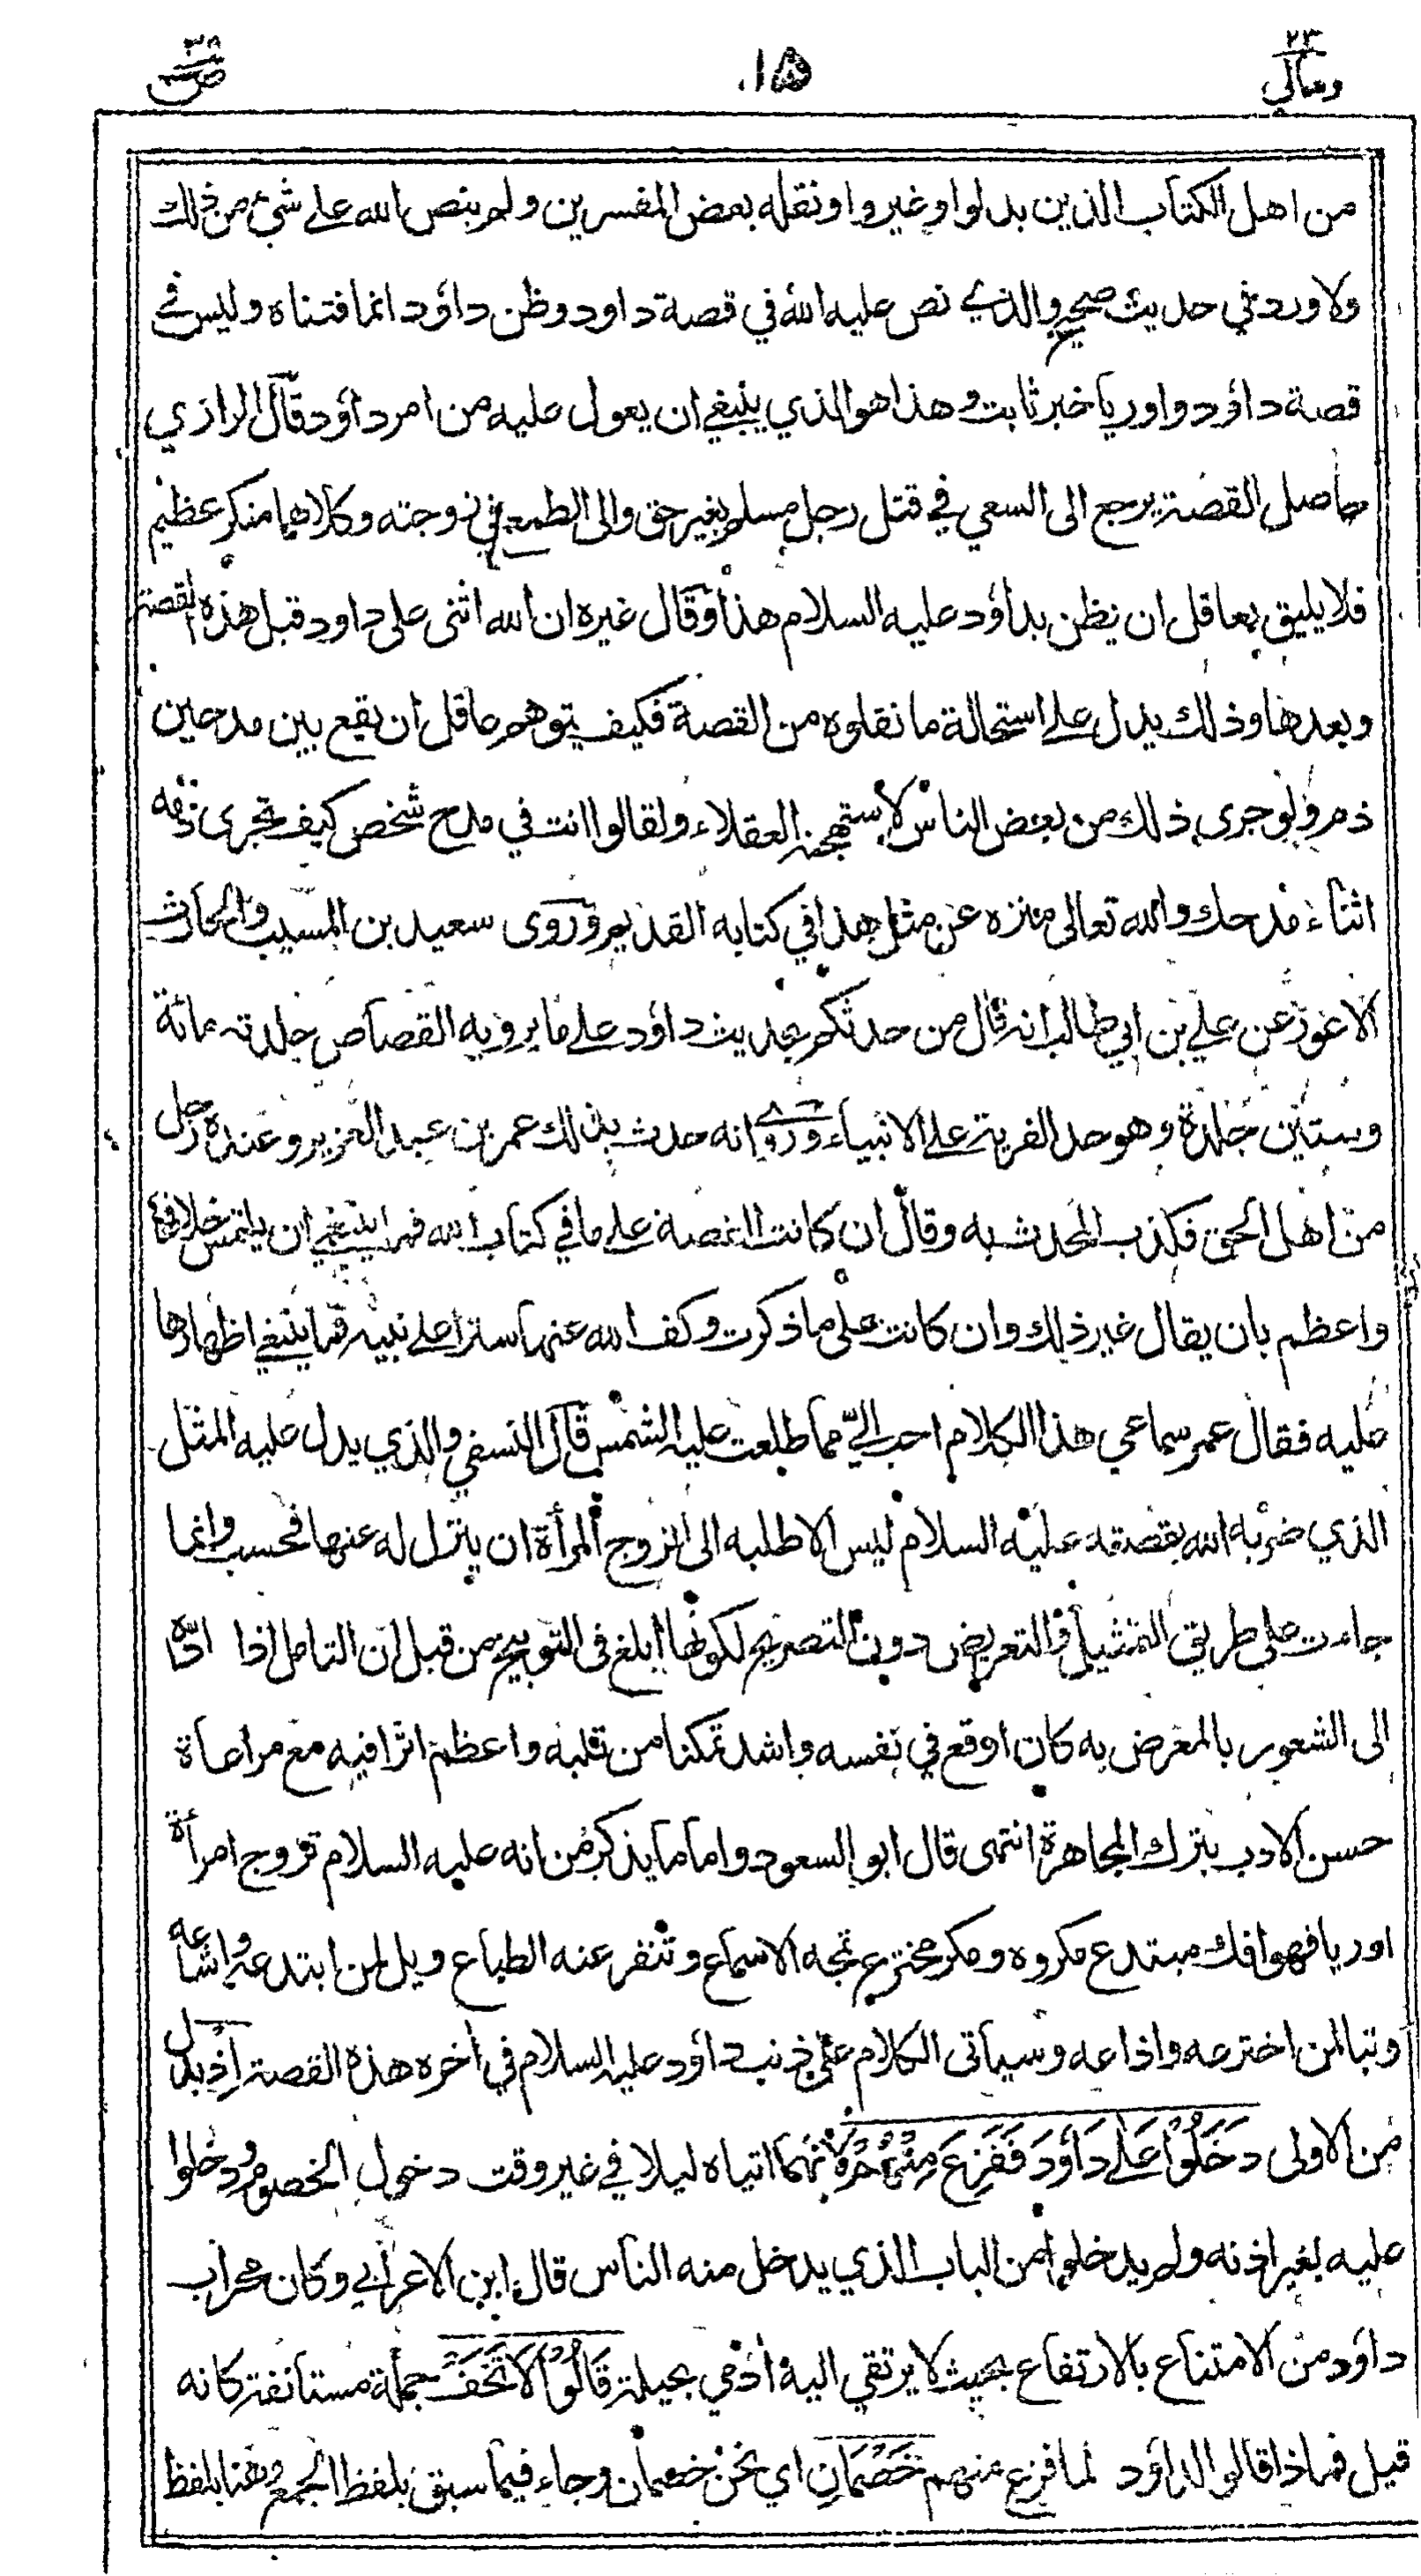 ٢٣ ومالي
١٥٠
٣٨ ص
من اهل الكتاب الذين بدلوا وغيروا ونقله بعض المفسرين ولم ينص الله على شيء من ذلك
ولا ورد في حديث صحيح والذي نص عليه الله في قصة داود وظن داؤد انما فتناه وليس في
قصة داؤد واوريا خبر ثابت وهذا هو الذي ينبغي ان يعول عليه من امر داؤد قال الرازي
حاصل القصة يرجع الى السعي في قتل رجل مسلم بغير حق والى الطمع في زوجته وكلاهما منكر عظيم
فلا يليق بعاقل ان يظن بداؤد عليه السلام هذا وقال غيره ان الله اثنى على داود قبل هذه القصة
وبعدها وذلك يدل على استحالة ما نقلوه من القصة فكيف يتوهم عاقل ان يقع بين مدحين
ذم ولو جرى ذلك من بعض الناس لاستهجنه العقلاء ولقالوا انت في مدح شخص كيف تجرى ذمه
اثناء مدحك والله تعالى منزه عن مثل هذا في كتابه القديم وروى سعيد بن المسيب والحارث
الاعور عن علي بن ابي طالب انه قال من حدثكم بحديث داؤد على ما يرويه القصاص جلدته مائة
وستين جلدة وهو حد الفرية على الانبياء وروي انه حدث بذلك عمر بن عبد العزيز وعنده رجل
من اهل الحق فكذب المحدث به وقال ان كانت القصة على ما في كتاب الله فما ينبغي ان يلتمس خلافها
واعظم بان يقال غير ذلك وان كانت على ما ذكرت وكف الله عنها سترا على نبيه فما ينبغي اظهارها
عليه فقال عمر سماعي هذا الكلام احب اليّ مما طلعت عليه الشمس قال النسفي والذي يدل عليه المثل
الذي ضربه الله بقصته عليه السلام ليس الا طلبه الى زوج المرأة ان ينزل له عنها فحسب وانما
جاءت على طريق التمثيل والتعريض دون التصريح لكونها ابلغ في التوبيخ من قبل ان التامل اذا ادّاه
الى الشعور بالمعرض به كان اوقع في نفسه واشد تمكنا من قلبه واعظم اثرا فيه مع مراعاة
حسن الادب بترك المجاهرة انتهى قال ابو السعود واما ما يذكر من انه عليه السلام تزوج امرأة
اوريا فهو افك مبتدع مكروه ومكر مخترع تمجه الاسماع وتنفر عنه الطباع ويل لمن ابتدعه واشاعه
وتبا لمن اخترعه واذاعه وسيأتى الكلام على ذنب داؤد عليه السلام في أخره هذه القصة اِذْ بدل
من الاولى دَخَلُوْا عَلٰى دَاوُدَ فَفَزِعَ مِنْهُمْ لانهما اتياه ليلا في غير وقت دخول الخصوم ودخلوا
عليه بغير اذنه ولم يدخلوا من الباب الذي يدخل منه الناس قال ابن الاعرابي وكان محراب
داؤد من الامتناع بالارتفاع بحيث لا يرتقي اليه أدمي بحيلة قَالُوْا لَا تَخَفْ جملة مستأنفة كانه
قيل فماذا قالوا لداؤد لما فزع منهم خَصْمَانِ اي نحن خصمان وجاء فيما سبق بلفظ الجمع وهنا بلفظ